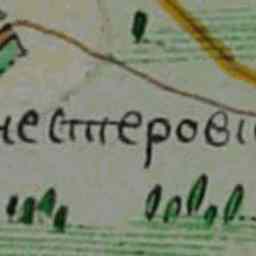 нестерові